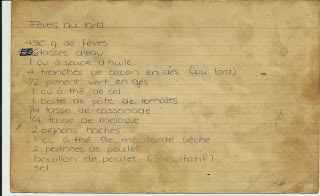 Fèves au lard
450 g de fèves
6 tasses d'eau
1 cu à soupe d'huile
4 tranches de bacon en dés (ou lard)
1/2 piment vert en dés
1 cu à thé de sel
1 boîte de pâte de tomates
1/4 tasse de cassonade
1/4 tasse de mélasse
2 oignons hachés
1 cu à thé de moutarde sèche
2 poitrines de poulet
bouillon de poulet (facultatif)
sel